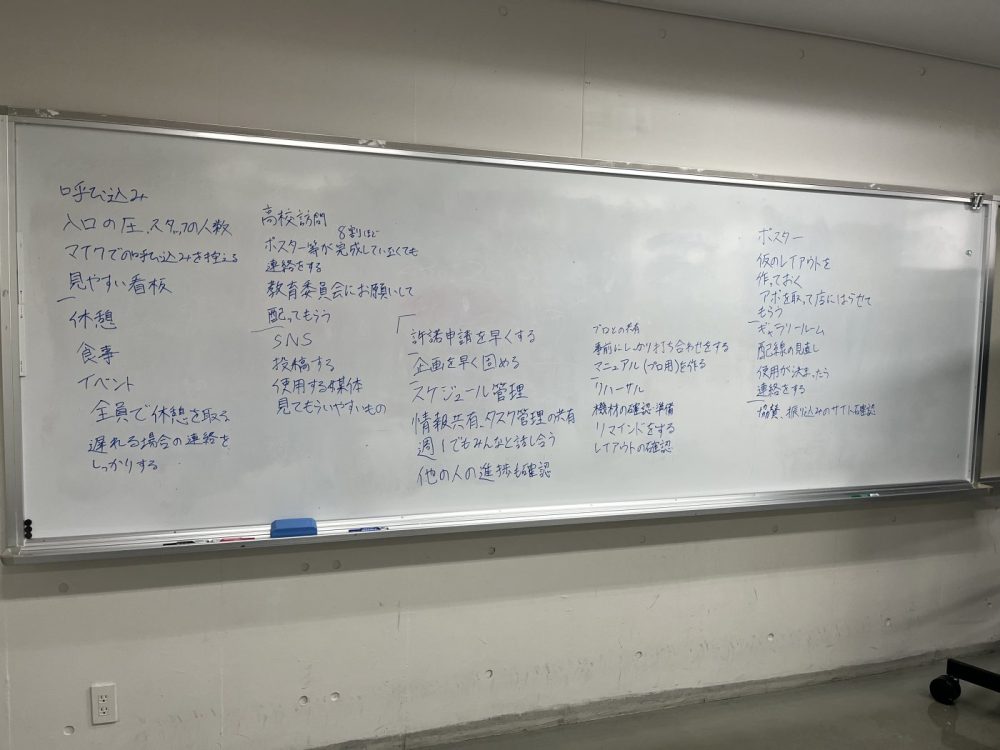 呼び込み
入口の圧、スタッフの人数
マイクでの呼び込みを控える
見やすい看板
休憩
食事
イベント
全員で休憩を取る
遅れる場合の連絡を
しっかりする
高校訪問
8割ほど
ポスター等が完成していなくても
連絡をする
教育委員会にお願いして
配ってもらう
SNS
投稿する
使用する媒体
見てもらいやすいもの
許諾申請を早くする
企画を早く固める
スケジュール管理
情報共有、タスク管理の共有
週1でもみんなと話し合う
他の人の進捗も確認
プロとの共有
事前にしっかり打ち合わせをする
マニュアル(プロ用)を作る
リハーサル
機材の確認・準備
リマインドをする
レイアウトの確認
ポスター
仮のレイアウトを
作っておく
アポを取って店にはらせて
もらう
ギャラリールーム
配線の見直し
使用が決まったら
連絡をする
協賛、振り込みのサイト確認